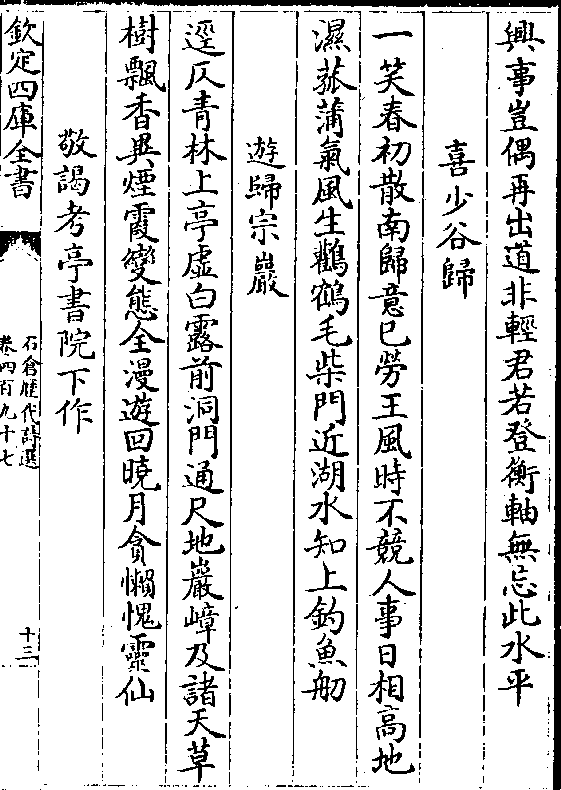 興事豈偶再出道非輕君若登衡軸無忘此水平
喜少谷歸
一笑春初散南歸意已勞王風時不競人事日相高地
濕菰蒲氣風生鸛鶴毛柴門近湖水知上釣魚舠
遊歸宗巖
逕仄青林上亭虛白露前洞門通尺地巖嶂及諸天草
樹飄香異煙霞變態全漫遊回曉月貪懶愧靈仙
敬謁考亭書院下作
欽定四庫全書
石倉歷代詩選
卷四百九十七
十三